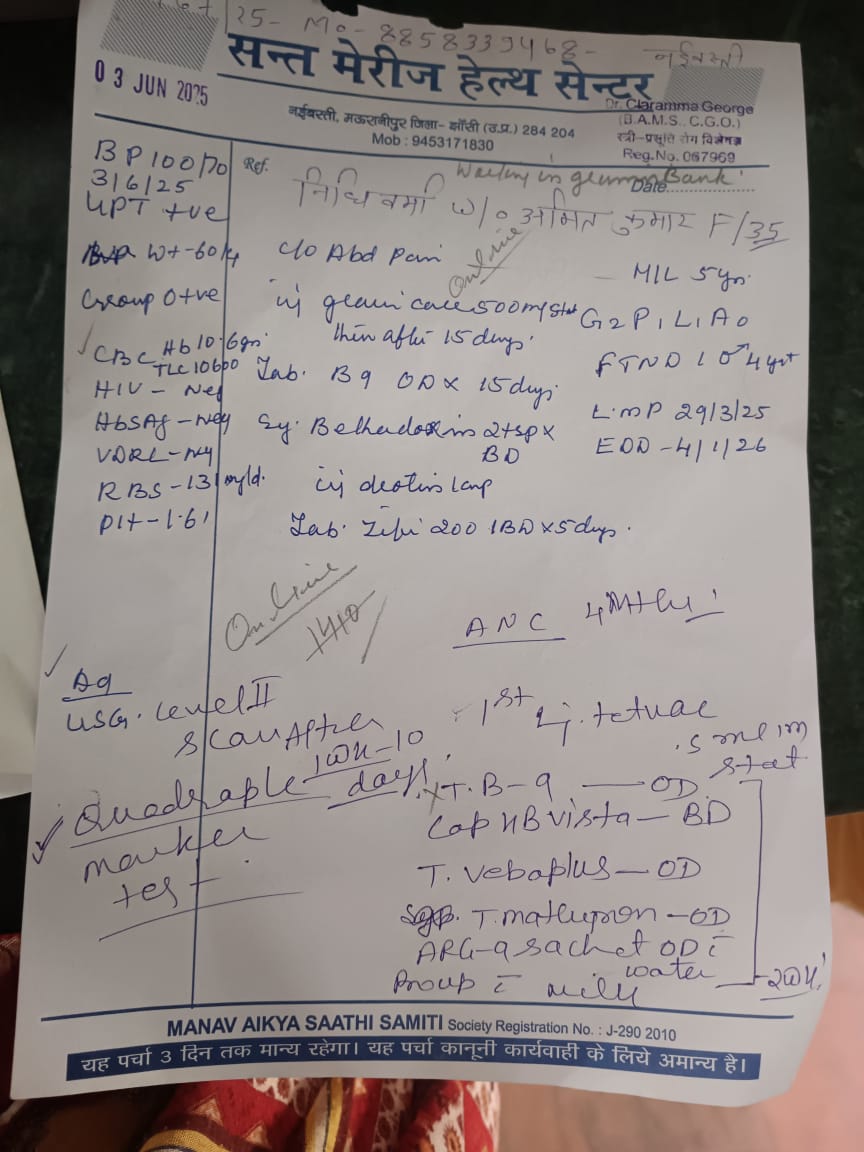 25- Mo- 8858339468-
नईबस्ती
सन्त मेरीज हेल्थ सेन्टर
03 JUN 2025
Dr. Claramma George
(B.A.M.S., C.G.O.)
स्त्री-प्रसूति रोग विशेषज्ञ
Reg.No. 067969
नईबस्ती, मऊरानीपुर जिला- झाँसी (उ.प्र.) 284 204
Mob : 9453171830
Ref.
Date
निधि वर्मा w/o अमित कुमार F/35
BP 100/70
3/6/25
UPT +ve
Wt-60kg
Group O+ve
CBC Hb 10.6gm
TLC 10600
HIV - Neg
HbSAg - Neg
VDRL - Neg
RBS - 131 mg/dl.
c/o Abd Pain
Online
500 stat
then after 15 days.
Tab. B9 OD x 15 days
Sy. 2tsp x
BD
inj
Tab. Zifi 200 1BD x 5 days.
M/L 5 yrs.
G2 P1 L1 A0
FTND 1
LMP 29/3/25
EDD - 4/1/26
Online
ANC
USG. Level II
Scan After
1 wk-10
days.
Quadraple
marker
test
1st Inj. tetvac
.5 ml im
stat
T. B-9 — OD
Cap HBvista — BD
T. Vebaplus — OD
— OD
ARG-9 sachet OD c̄
water
c̄ milk
MANAV AIKYA SAATHI SAMITI Society Registration No. : J-290 2010
यह पर्चा 3 दिन तक मान्य रहेगा। यह पर्चा कानूनी कार्यवाही के लिये अमान्य है।